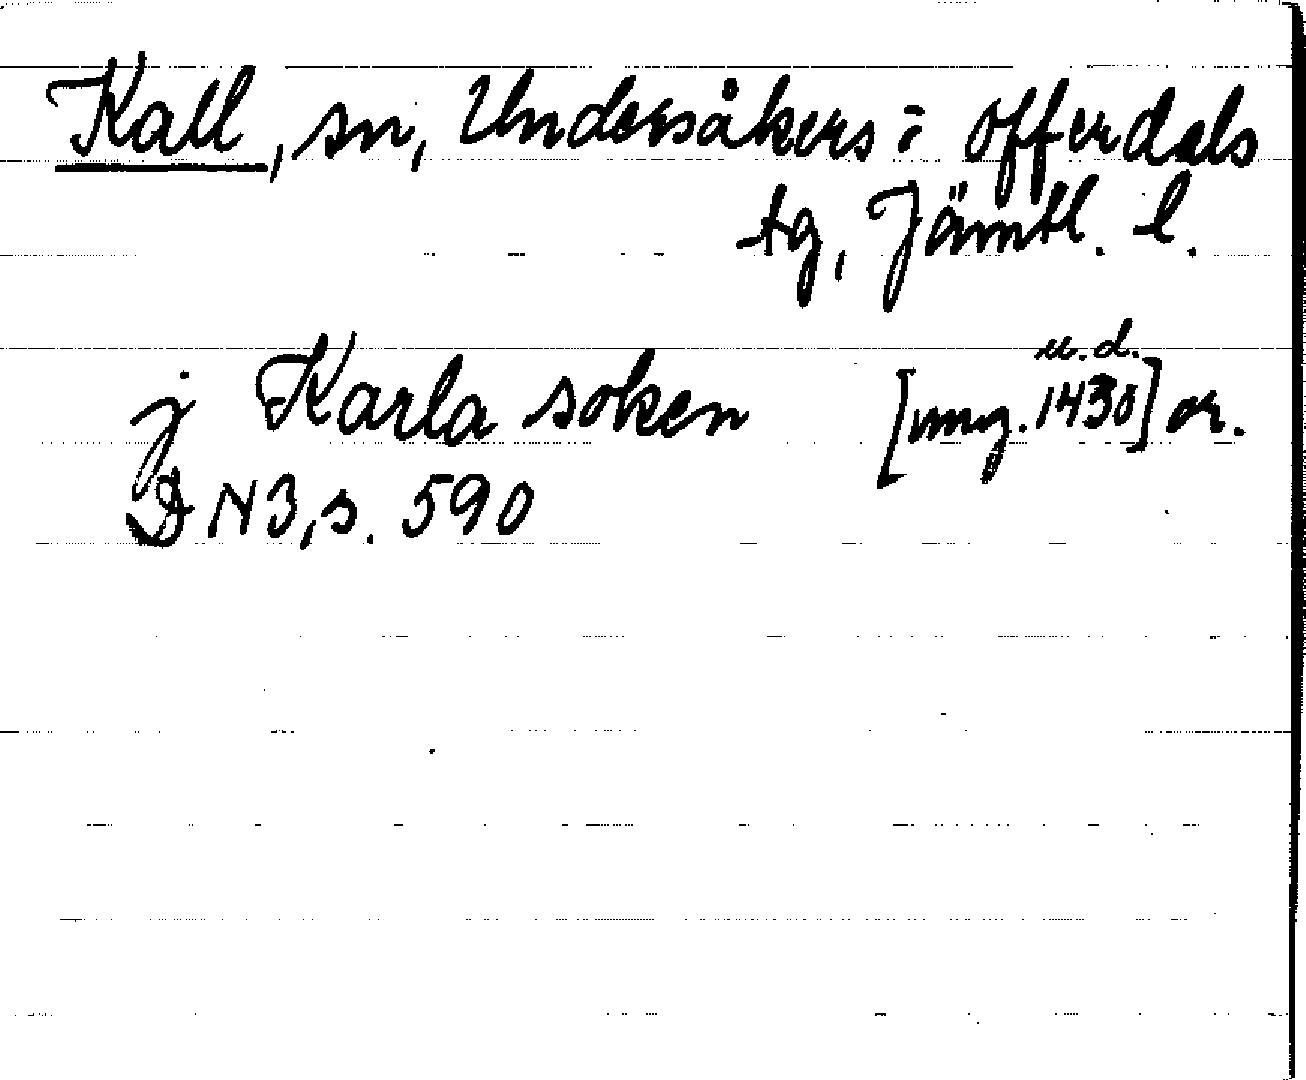 Kall, sn, Undersåkers o Offerdals
tg, Jämtl. l.
j Karla soken [omg. 1430] or.
u. d.
DN 3, s. 590